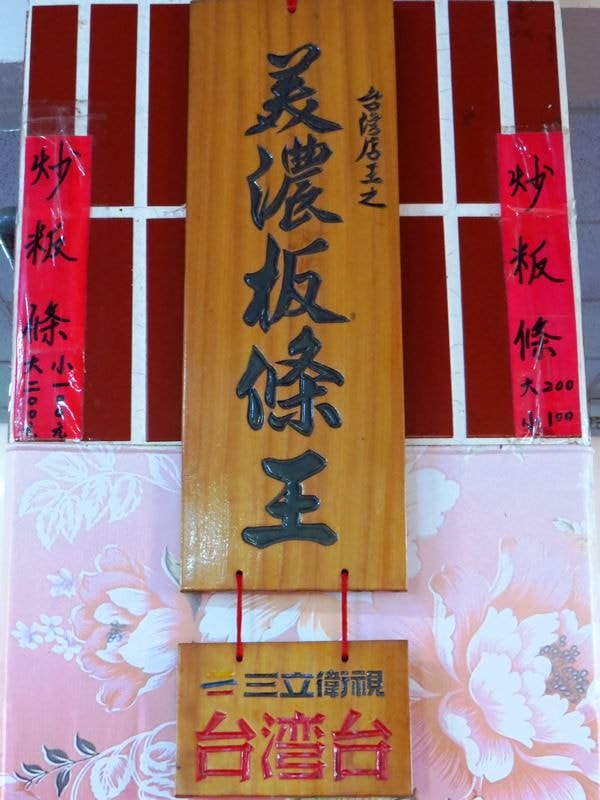 台灣店王之
美濃板條王
三立衛視
台灣台
炒粄條
大200
小100
炒粄條
小一百元
大二00元